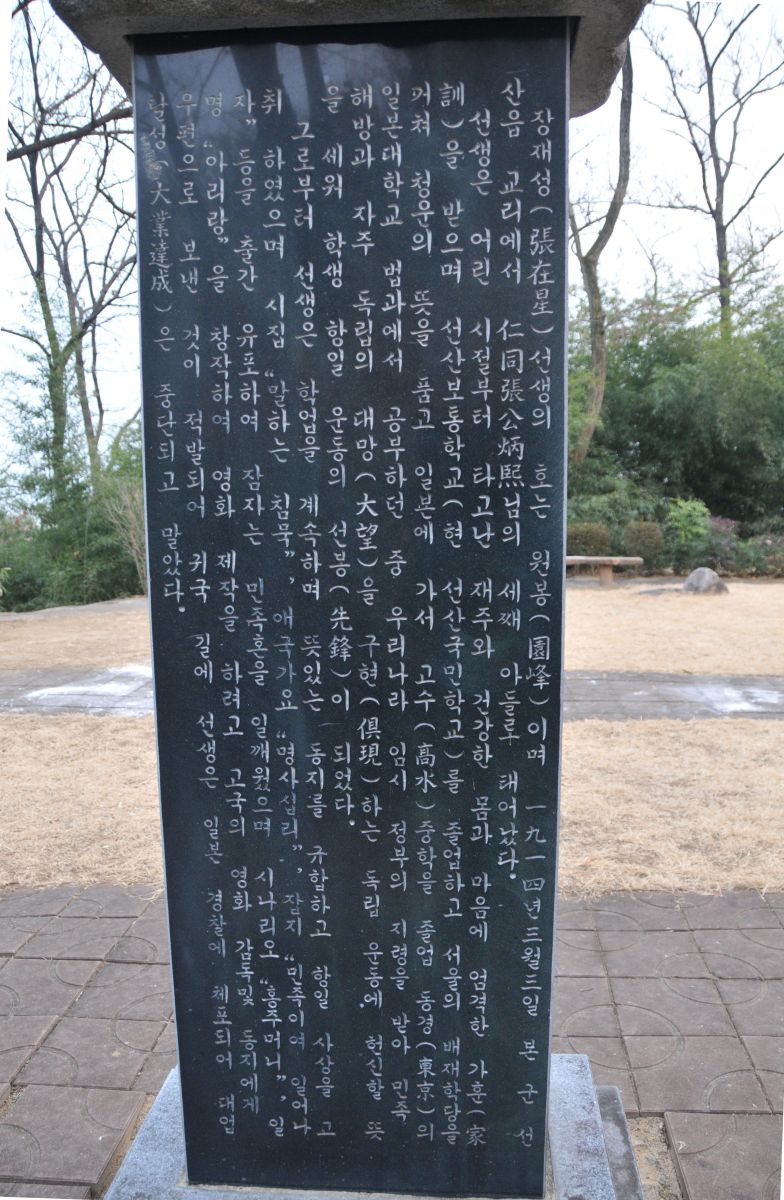 장재성(張在星)선생의 호는 원봉(園峰)이며 一九一四년 三월三일 본 군 선
산읍 교리에서 仁同張公炳熙님의 세째 아들로 태어났다.
선생은 어린 시절부터 타고난 재주와 건강한 몸과 마음에 엄격한 가훈(家
訓)을 받으며 선산보통학교(현 선산국민학교)를 졸업하고 서울의 배재학당을
거쳐 청운의 뜻을 품고 일본에 가서 고수(高水)중학을 졸업 동경(東京)의
일본대학교 법과에서 공부하던 중 우리나라 임시 정부의 지령을 받아 민족
해방과 자주 독립의 대망(大望)을 구현(俱現)하는 독립 운동에 헌신할 뜻
을 세워 학생 항일 운동의 선봉(先鋒)이 되었다.
그로부터 선생은 학업을 계속하며 뜻있는 동지를 규합하고 항일 사상을 고
취 하였으며 시집 "말하는 침묵", 애국가요 "명사십리", 잡지 "민족이여 일어나
자" 등을 출간 유포하여 잠자는 민족혼을 일깨웠으며 시나리오 "홍주머니", 일
명 "아리랑"을 창작하여 영화 제작을 하려고 고국의 영화 감독및 동지에게
우편으로 보낸 것이 적발되어 귀국 길에 선생은 일본 경찰에 체포되어 대업
달성(大業達成)은 중단되고 말았다.